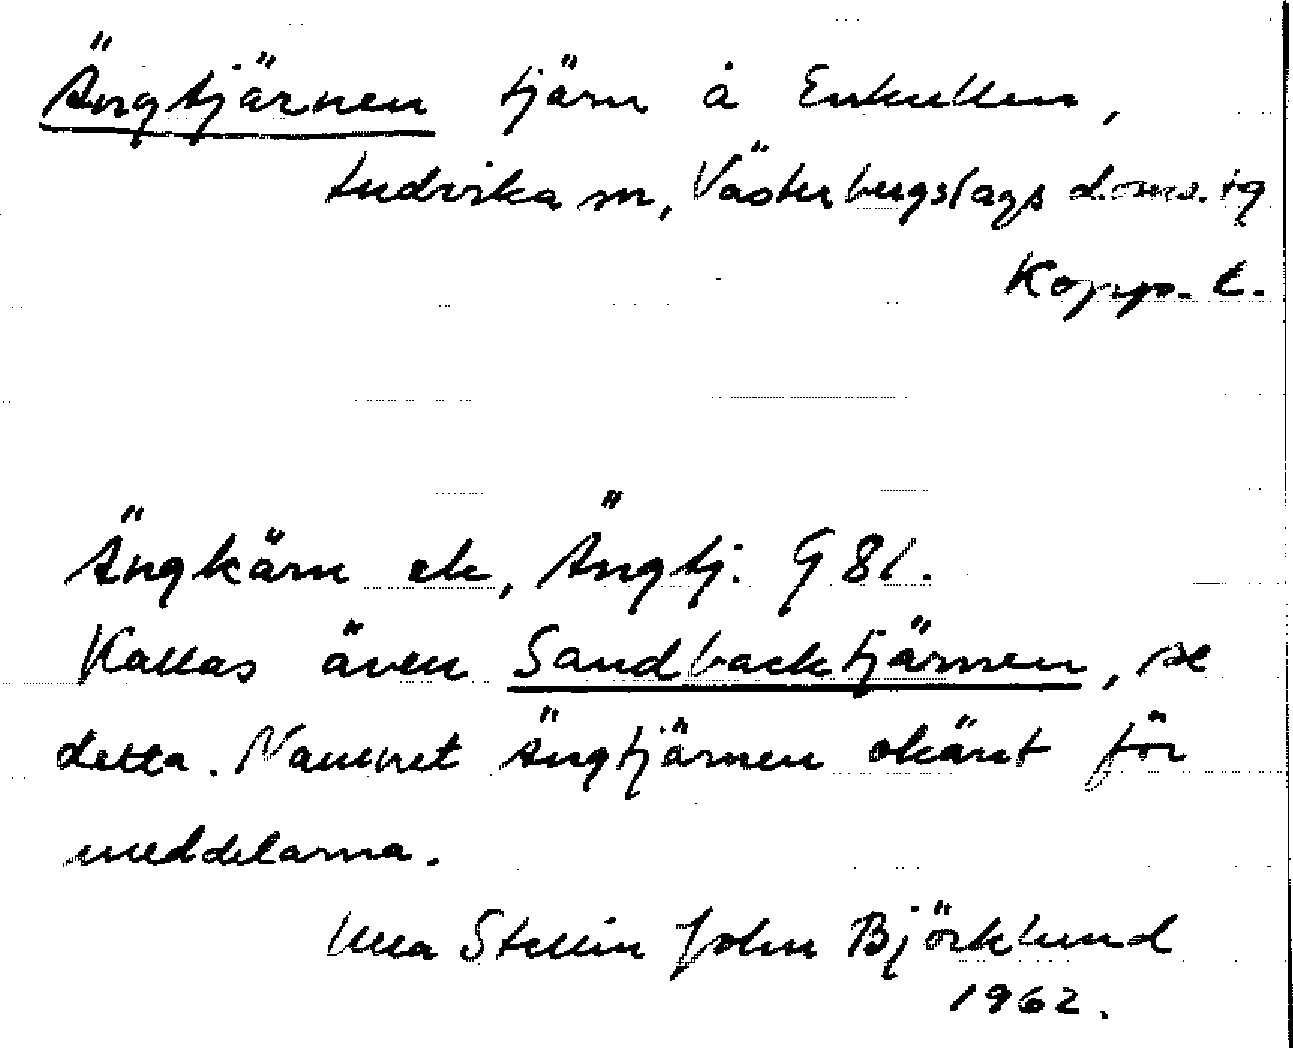 Ängtjärnen tjärn å Enkullen,
Ludvika sn, Västerbergslags doms. tg
Kopp. l.
Ängkärn ek, Ängtj. G 81.
Kallas även Sandbacktjärnen, se
detta. Namnet Ängtjärnen okänt för
meddelarna.
Ulla Stellin John Björklund
1962.